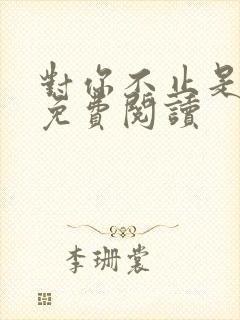 對你不止是
免費閱讀
李珊裳